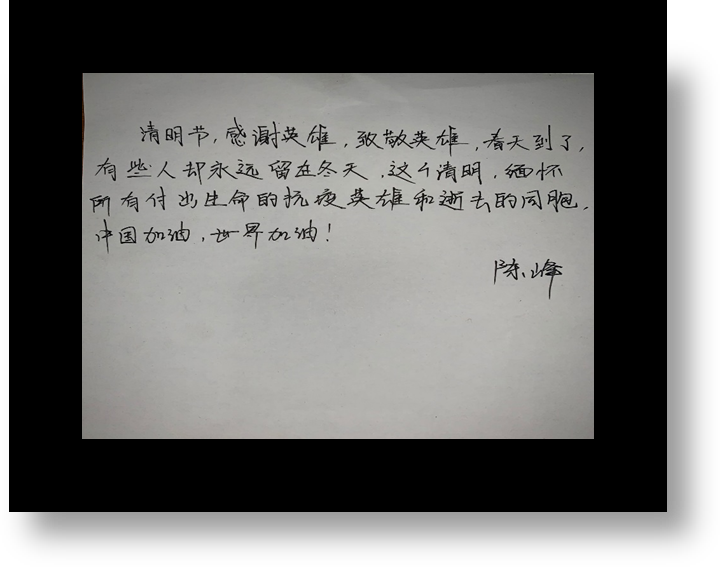 清明节,感谢英雄,致敬英雄,春天到了,
有些人却永远留在冬天,这个清明,缅怀
所有付出生命的抗疫英雄和逝去的同胞,
中国加油,世界加油!
陈峰